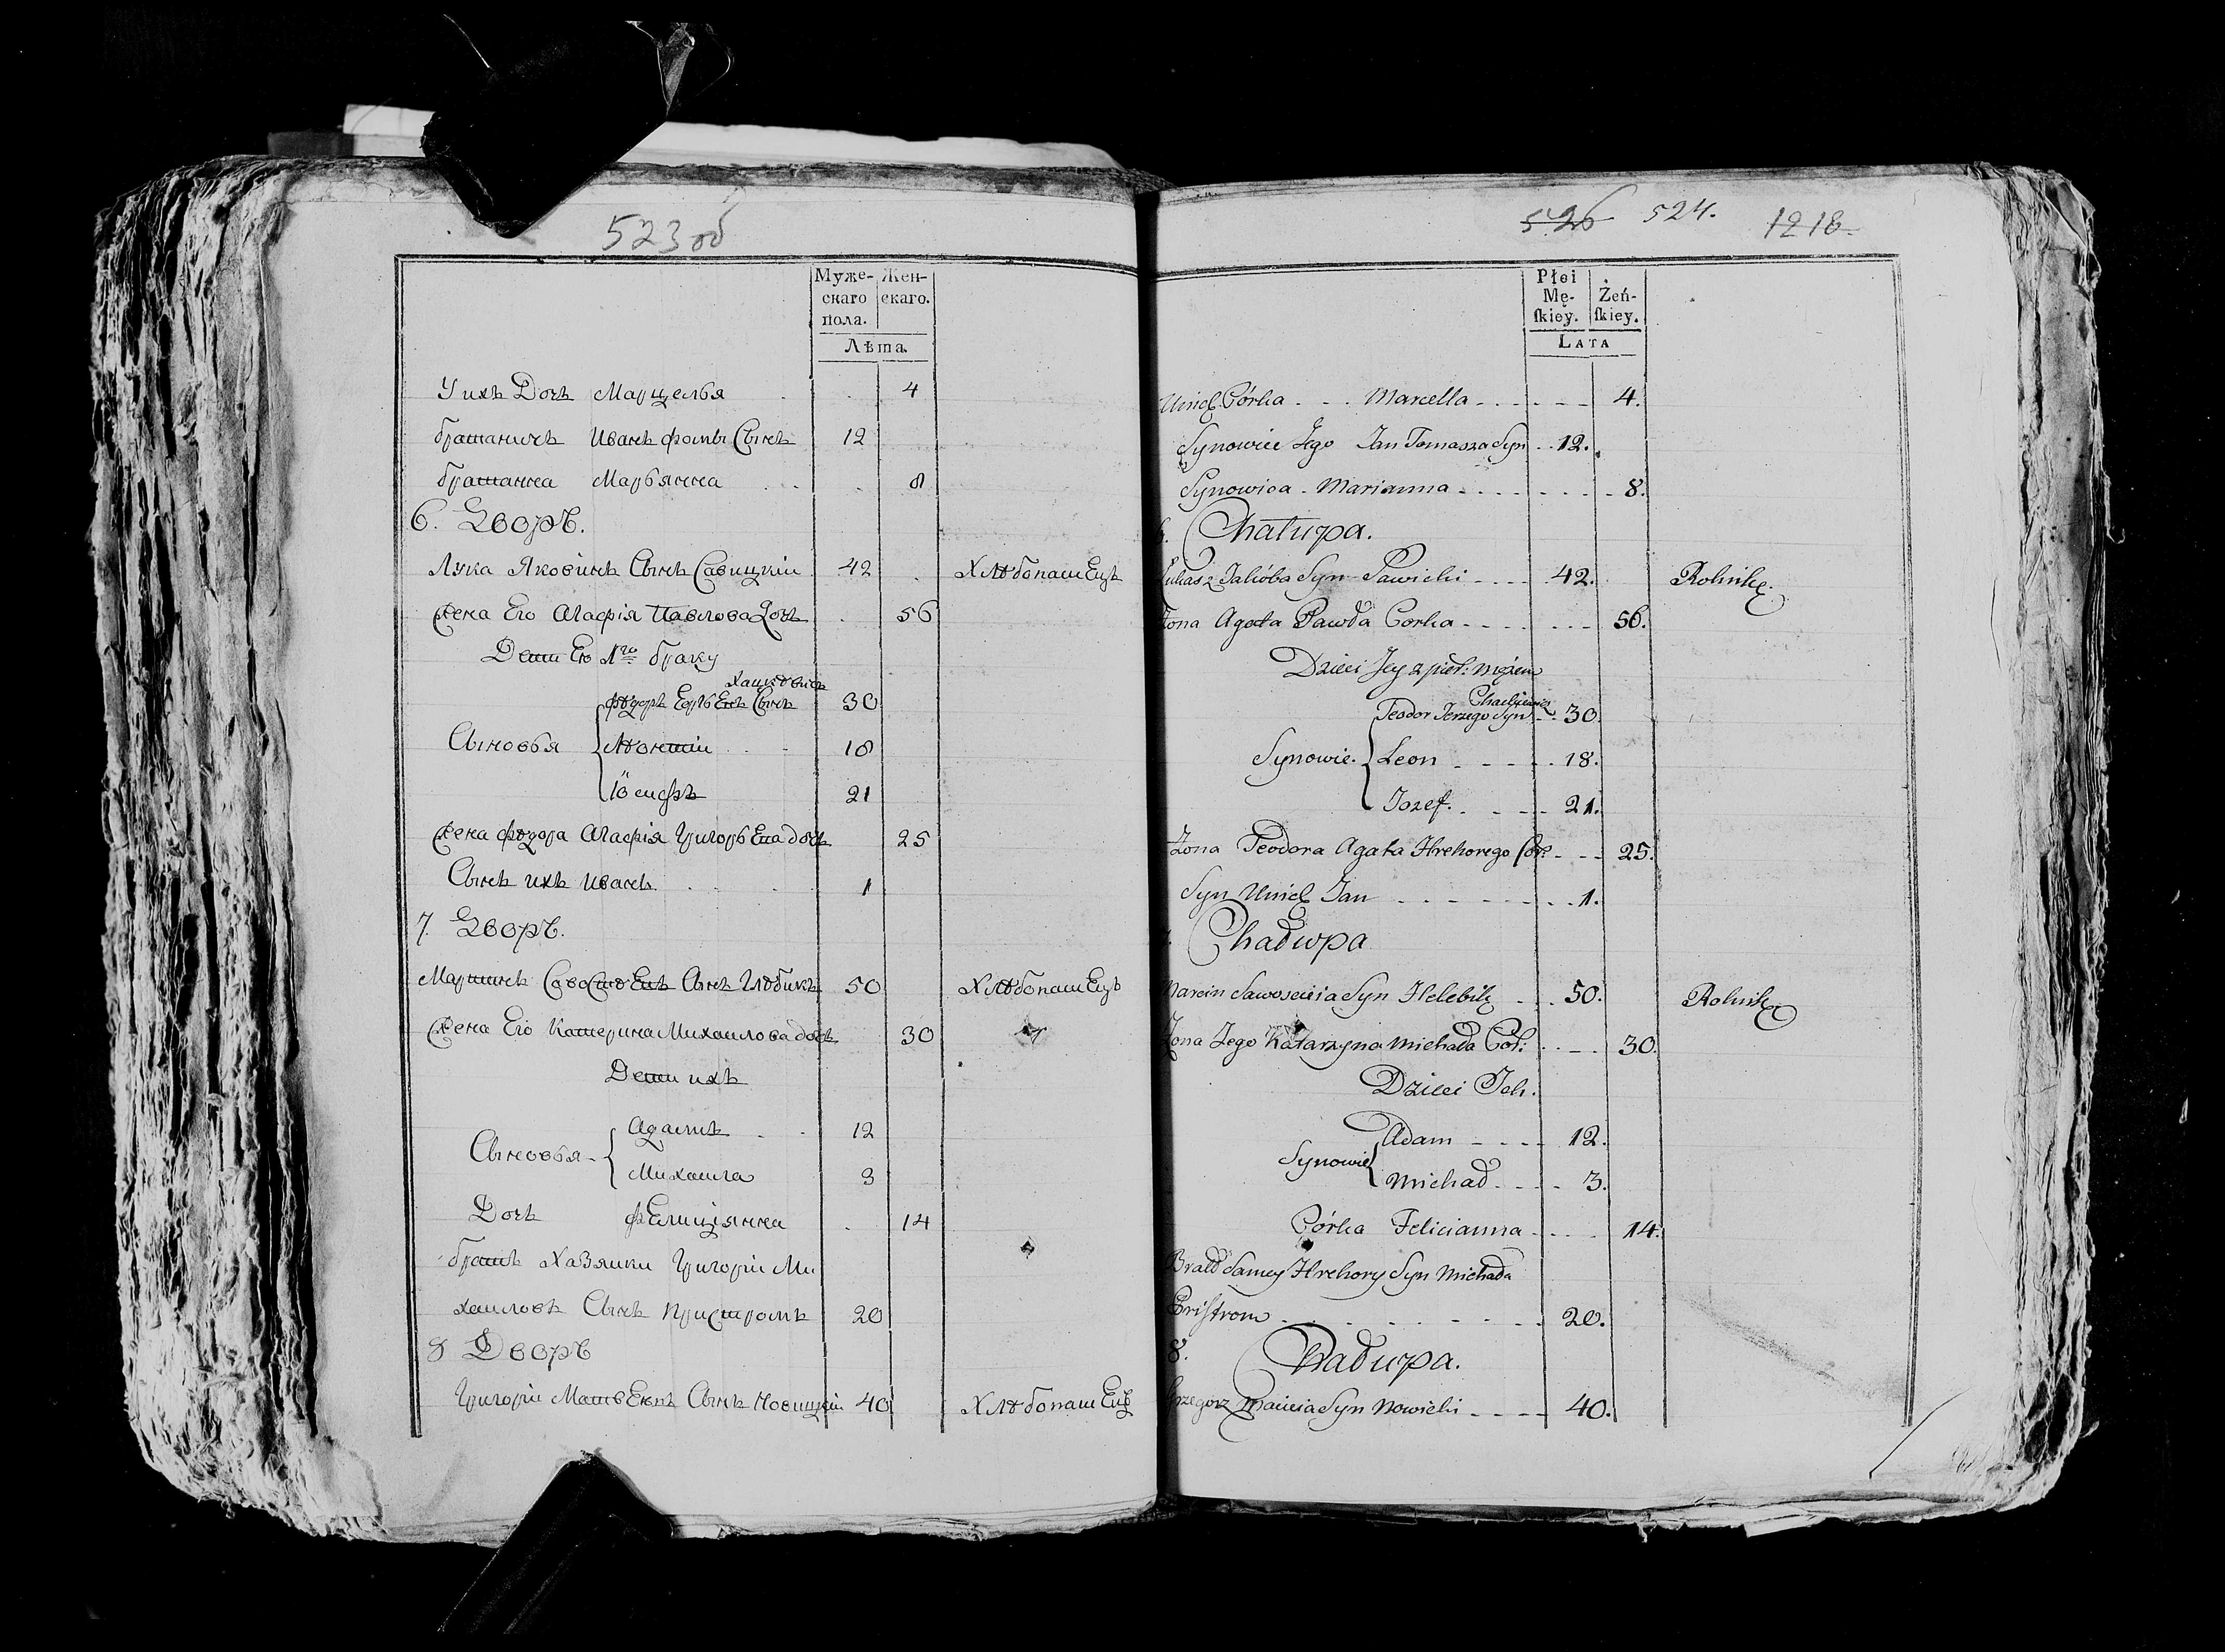 523 об
Муже- Жен-
скаго скаго.
пола.
Лѣта.
У ихъ Дочь Марцелья 4
братаничъ Иванъ Фомы Сынъ 12
братанка Марьянна 8
6. Дворъ.
Лука Яковинъ Сынъ Савицкій 42 Хлѣбопашецъ
Жена Его Агафія Павлова Дочь 56
Дети Ею 1го браку
Хацкѣвичъ
Фѣдоръ Еорьевъ Сынъ 30
Сыновья Лѣонтій 18
Іосифъ 21
Жена Фѣдора Агафія Григорьева дочь 25
Сынъ ихъ Иванъ 1
7. Дворъ.
Мартинъ Савостѣевъ Сынъ Глѣбикъ 50 Хлѣбопашецъ
Жена Его Катерина Михайлова дочь 30
Дети ихъ
Адамъ 12
Сыновья
Михайла 3
Дочь Фелиціянна 14
братъ Хазяйки Григорій Ми
хайловъ Сынъ Пристромъ 20
8 Дворъ
Григорій Матвеевъ Сынъ Новицкій 40 Хлѣбопашецъ
526 524. 1218.
Płci
Mę- Żeń-
ſkiey. ſkiey.
LATA
Unich Córka Marcella 4.
Synowiec Jego Jan Tomasza Syn 12.
Synowica Marianna 8.
6. Chałupa.
Łukasz Jakóba Syn Sawicki 42. Rolnik
Żona Agata Pawła Corka 56.
Dzieci Jey z pier: mężem
Teodor Jerzego Syn 30
Synowie. Leon 18.
Jozef. 21.
Żona Teodora Agata Hrehorego Cór. 25.
Syn Unich Jan 1.
7. Chałupa
Marcin Sawościeia Syn Helebik 50. Rolnik
Żona Jego Katarzyna Michała Cór: 30.
Dzieci Ich.
Adam 12.
Synowie
Michał 3.
Córka Felicianna 14.
Brat Samey Hrehory Syn Michała
Priſtrom 20.
8. Chałupa.
Grzegorz Macieia Syn Nowicki 40.